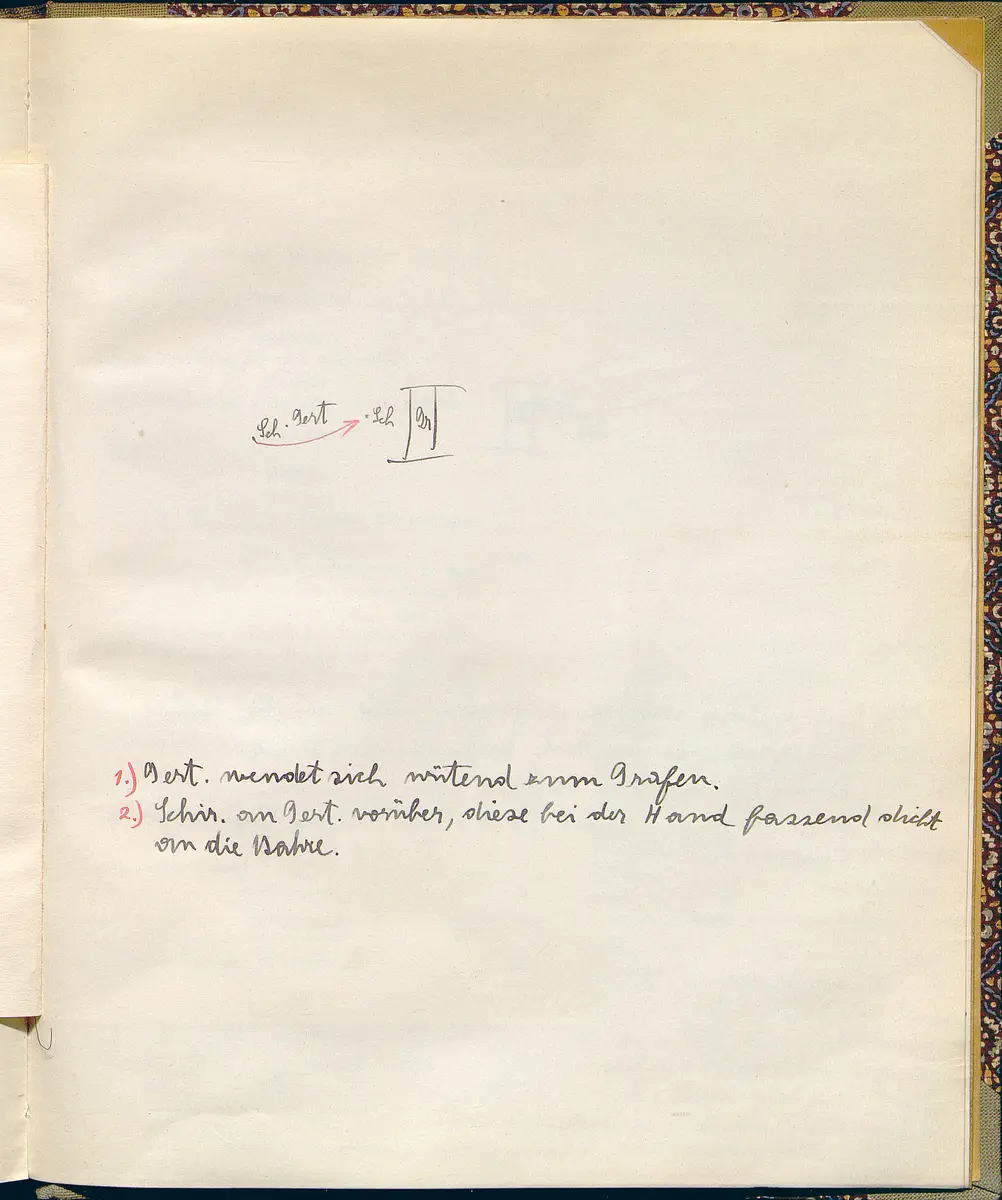 Sch. Gert Sch Gr
1.) Gert. wendet sich wütend zum Grafen.
2.) Schir. an Gert. vorüber, diese bei der Hand fassend dicht
an die Bahre.